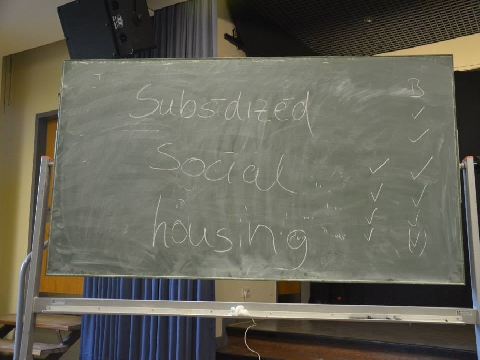 Subsidized
Social
housing
B